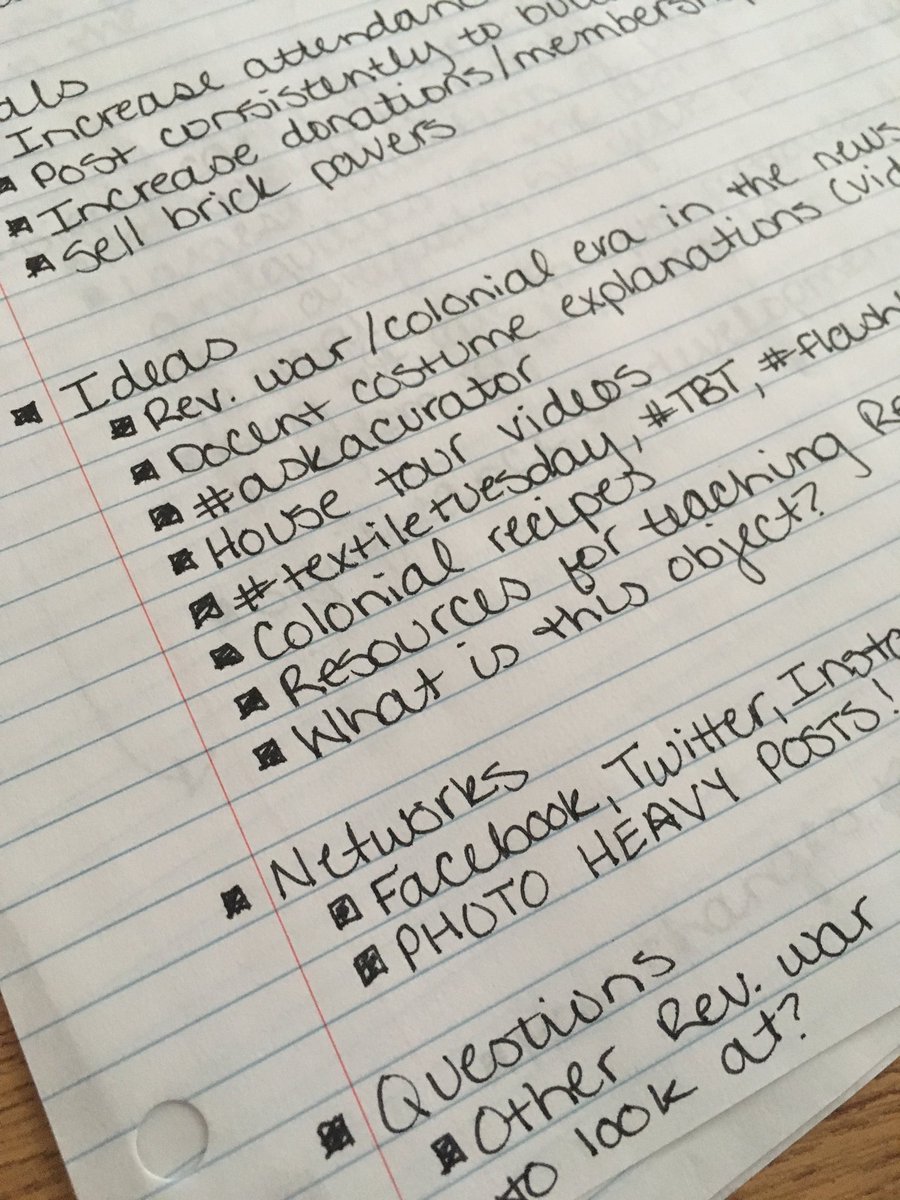 als
Increase attendanc
Post consistently to bu
Increase donations/membersh
Sell brick pavers
Ideas
Rev. war/colonial era in the news
Docent costume explanations (vid
#askacurator
House tour videos
#textiletuesday, #TBT, #flash
Colonial recipes
Resources for teaching Re
What is this object?
Networks
Facebook, Twitter, Insta
PHOTO HEAVY POSTS!
Questions
Other Rev. war
to look at?